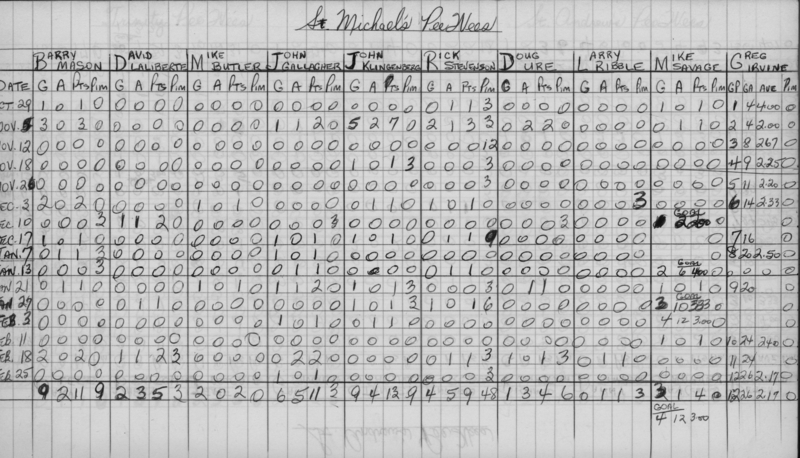 St. Michael's PeeWees
BARRY MASON DAVID LALIBERTE MIKE BUTLER JOHN GALLAGHER JOHN KLINGENBERG RICK STEVENSON DOUG URE LARRY RIBBLE MIKE SAVAGE GREG IRVINE
DATE G A Pts Pim G A Pts Pim G A Pts Pim G A Pts Pim G A Pts Pim G A Pts Pim G A Pts Pim G A Pts Pim G A Pts Pim GP GA AVE Pim
OCT 29 1 0 1 0 0 0 0 0 0 0 0 0 0 0 0 0 0 0 0 0 0 1 1 3 0 0 0 0 0 0 0 0 1 0 1 0 1 4 4.00 0
NOV. 5 3 0 3 0 0 0 0 0 0 0 0 0 1 1 2 0 5 2 7 0 2 1 3 3 0 2 2 0 0 0 0 0 0 1 1 0 2 4 2.00 0
NOV. 12 0 0 0 0 0 0 0 0 0 0 0 0 0 0 0 0 0 0 0 0 0 0 0 12 0 0 0 0 0 0 0 0 0 0 0 0 3 8 2.67 0
NOV. 18 0 0 0 0 0 0 0 0 0 0 0 0 0 0 0 0 1 0 1 3 0 0 0 3 0 0 0 0 0 0 0 0 0 0 0 0 4 9 2.25 0
NOV. 26 0 0 0 0 0 0 0 0 0 0 0 0 0 0 0 0 0 0 0 0 0 0 0 3 0 0 0 0 0 0 0 0 0 0 0 0 5 11 2.20 0
DEC. 3 2 0 2 0 0 0 0 0 1 0 1 0 0 0 0 0 0 1 1 0 1 0 1 0 0 0 0 0 0 0 0 3 0 0 0 0 6 14 2.33 0
DEC 10 0 0 0 3 1 1 2 0 0 0 0 0 0 0 0 3 0 0 0 0 0 0 0 0 0 0 0 3 0 0 0 0 GOAL 0
DEC. 17 1 0 1 0 0 0 0 0 0 0 0 0 1 0 1 0 1 0 1 0 0 1 1 9 0 0 0 0 0 0 0 0 0 7 16 0
JAN. 7 0 1 1 3 0 0 0 0 0 0 0 0 1 0 1 0 0 0 0 0 0 0 0 0 0 0 0 0 0 0 0 0 0 8 20 2.50 0
JAN. 13 0 0 0 3 0 0 0 0 0 0 0 0 0 1 1 0 0 0 0 0 0 1 1 0 0 0 0 0 0 0 0 0 GOAL 2 6 4.00 0 0 0 0 0
JAN 21 0 1 1 0 0 0 0 0 1 0 1 0 1 1 2 0 1 0 1 3 0 0 0 3 0 1 1 0 0 0 0 0 1 0 1 0 9 20 0
JAN 27 0 0 0 0 0 1 1 0 0 0 0 0 0 0 0 0 1 0 1 3 1 0 1 6 0 0 0 0 0 0 0 0 GOAL 3 10 3.33 0 0
FEB. 3 0 0 0 0 0 0 0 0 0 0 0 0 1 0 1 0 0 1 1 0 0 0 0 0 0 0 0 0 0 0 0 0 4 12 3.00 0 0
FEB. 11 0 0 0 0 0 0 0 0 0 0 0 0 0 0 0 0 0 0 0 0 0 0 0 0 0 0 0 0 0 0 0 0 1 0 1 0 10 24 2.40 0
FEB. 18 2 0 2 0 1 1 2 3 0 0 0 0 0 2 2 0 0 0 0 0 0 1 1 3 1 0 1 3 0 1 1 0 0 0 0 0 11 24 0
FEB 25 0 0 0 0 0 0 0 0 0 0 0 0 1 0 1 0 0 0 0 0 0 0 0 3 0 0 0 0 0 0 0 0 0 0 0 0 12 26 2.17 0
9 2 11 9 2 3 5 3 2 0 2 0 6 5 11 3 9 4 13 9 4 5 9 48 1 3 4 6 0 1 1 3 3 1 4 0 12 26 2.17 0
GOAL
4 12 3.00